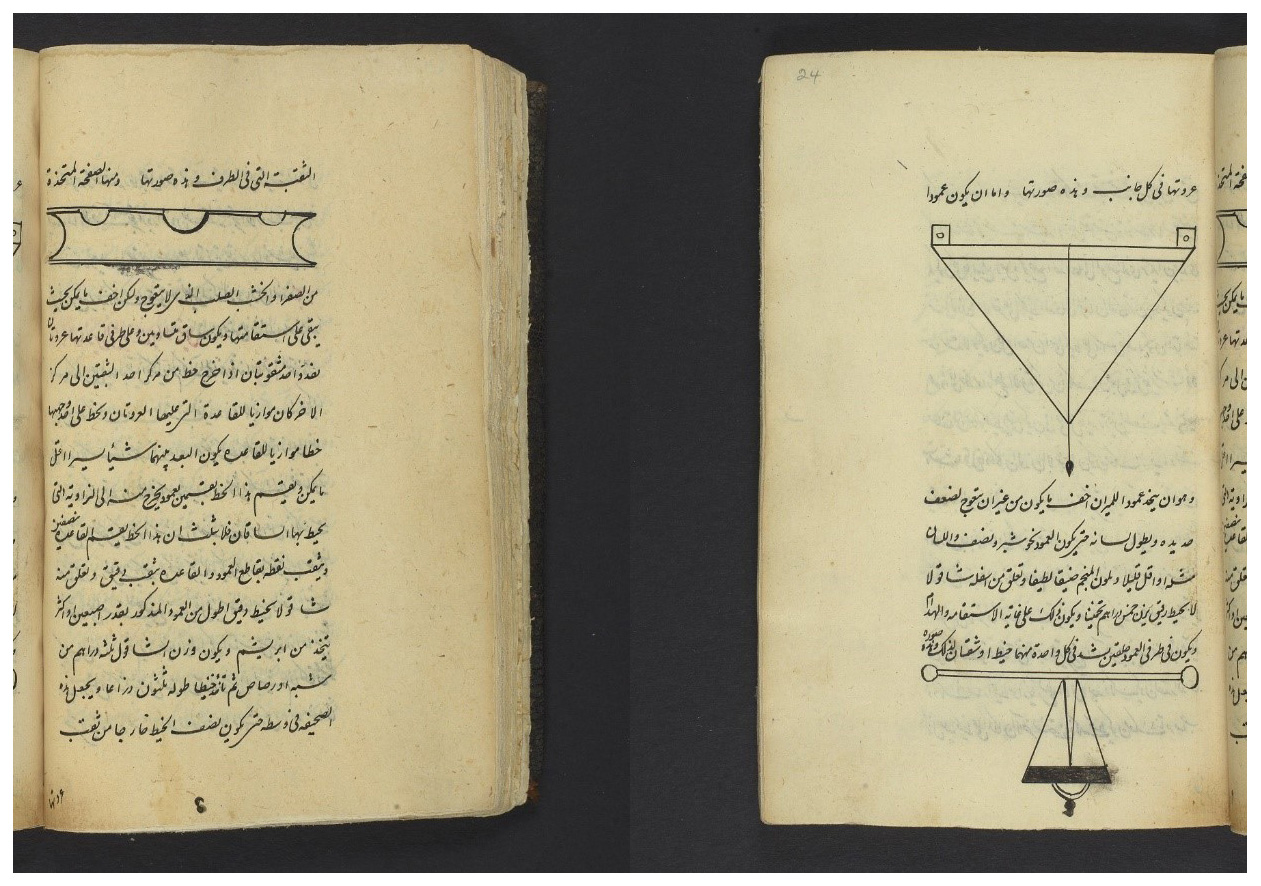 الثقبة التى فى الطرف وهذه صورتها ومنها الصفحة المتخذة
من الصفر او الخشب الصلب الذى لا يتعوج ولكن اخف ما يمكن بحيث
يبقى على استقامتها ويكون ساق متساويين وعلى طرفى قاعدتها عروتان
واحد مثقوبتان اذا خرج خط من مركز احد الثقبتين الى مركز
الاخر كان موازيا للقاعدة التى عليها العروتان وتخط على احد وجهيها
خطا موازيا للقاعدة يكون البعد بينهما شيئا يسيرا اقل
ما يمكن ونقسم هذا الخط بقسمين بعمود يخرج منه الى الزاوية التى
يحيط بها الساقان فلا شك ان هذا الخط يقسم القاعدة نصفين
وتثقب نقطة تقاطع العمود والقاعدة بثقب دقيق وتعلق منه
شاقولا بخيط دقيق اطول من العمود المذكور بقدر اصبعين او اكثر
يتخذ من ابريشم ويكون وزن الشاقول ثلثة دراهم من
شبه او رصاص ثم تاخذ خيطا طوله ثلثون ذراعا ويجعل هذه
الصحيفة فى وسطه حتى يكون نصف الخيط خارجا من ثقب
عروتها
24
عروتها فى كل جانب وهذه صورتها واما ان يكون عمودا
وهو ان يتخذ عمود الميزان اخف ما يكون من غير ان يتعوج لضعف
حديده ويطول لسانه حتى يكون العمود نحو شبر ونصف واللسان
مثله او اقل قليلا ويكون المنجم ضيقا لطيفا وتعلق من سفله شاقولا
بخيط دقيق يزن خمس دراهم تخمينا ويكون ذلك على غاية الاستقامة
ويكون فى طرفى العمود حلقتين يشد فى كل واحدة منهما خيط او شقتان لذلك وهذه صورة